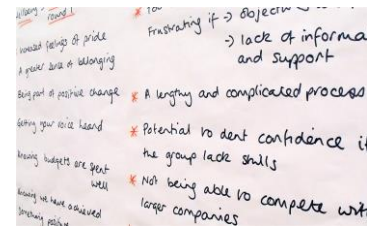 wellbeing
round 1
Increased feelings of pride
A greater sense of belonging
Being part of positive change
Getting your voice heard
Knowing budgets are spent
well
Knowing we have achieved
something positive
* You
Frustrating if → objectiv
→ lack of informa
and support
* A lengthy and complicated process
* Potential to dent confidence if
the group lack skills
* Not being able to compete with
larger companies